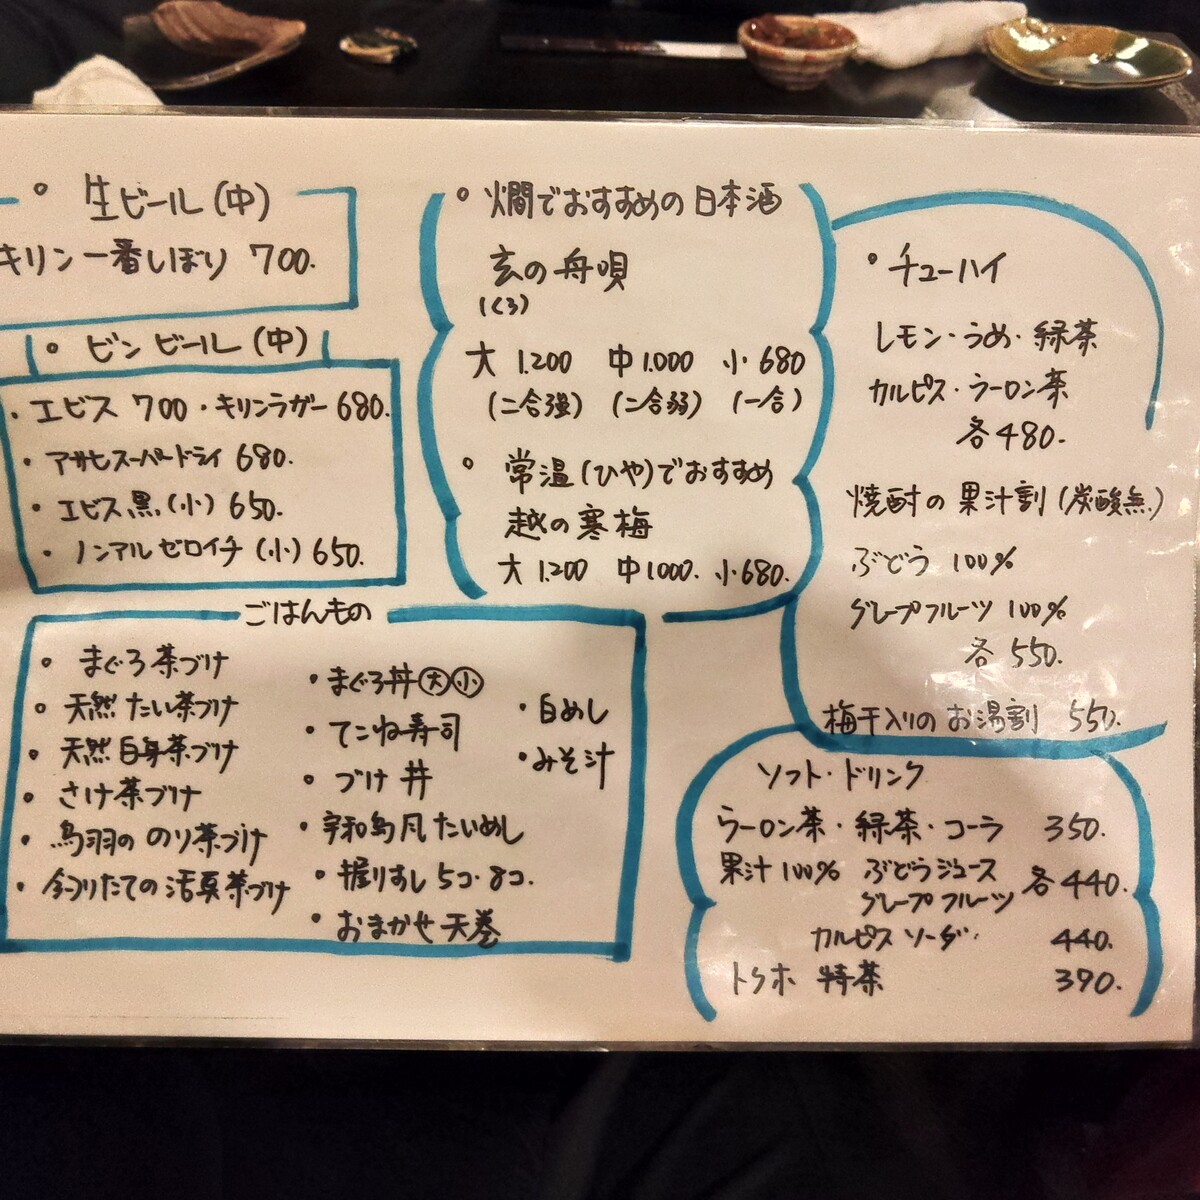 生ビール(中)
キリン一番しぼり 700.
ビンビール(中)
エビス 700・キリンラガー 680.
アサヒスーパードライ 680.
エビス黒(小) 650.
ノンアルゼロイチ(小) 650.
燗でおすすめの日本酒
玄の舟唄
(くろ)
大 1.200 中 1.000 小 680
(二合強) (二合弱) (一合)
常温(ひや)でおすすめ
越の寒梅
大 1.200 中 1000. 小 680.
チューハイ
レモン・うめ・緑茶
カルピス・ウーロン茶
各480.
焼酎の果汁割(炭酸無)
ぶどう 100%
グレープフルーツ 100%
各 550.
梅干入りのお湯割 550.
ごはんもの
まぐろ茶づけ
天然たい茶づけ
天然白身茶づけ
さけ茶づけ
鳥羽ののり茶づけ
釣りたての活真茶づけ
まぐろ丼大小
てこね寿司
づけ丼
宇和島風たいめし
握りすし5コ・8コ.
おまかせ天巻
白めし
みそ汁
ソフト・ドリンク
ウーロン茶・緑茶・コーラ 350.
果汁100% ぶどうジュース
グレープフルーツ 各440.
カルピスソーダ 440.
トクホ 特茶 390.